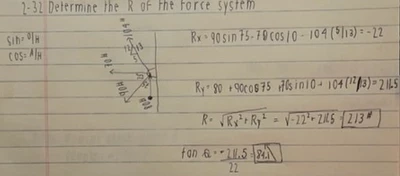 2-32 Determine the R of the force system
sin= O/H
cos= A/H
Rx= 90sin75-70cos10-104(5/13)=-22
Ry= 80 +90cos75 +70sin10+104(12/13)=211.5
R= √Rx²+Ry² = √-22²+211.5 = 213#
tan = -211.5 = 84.1
22